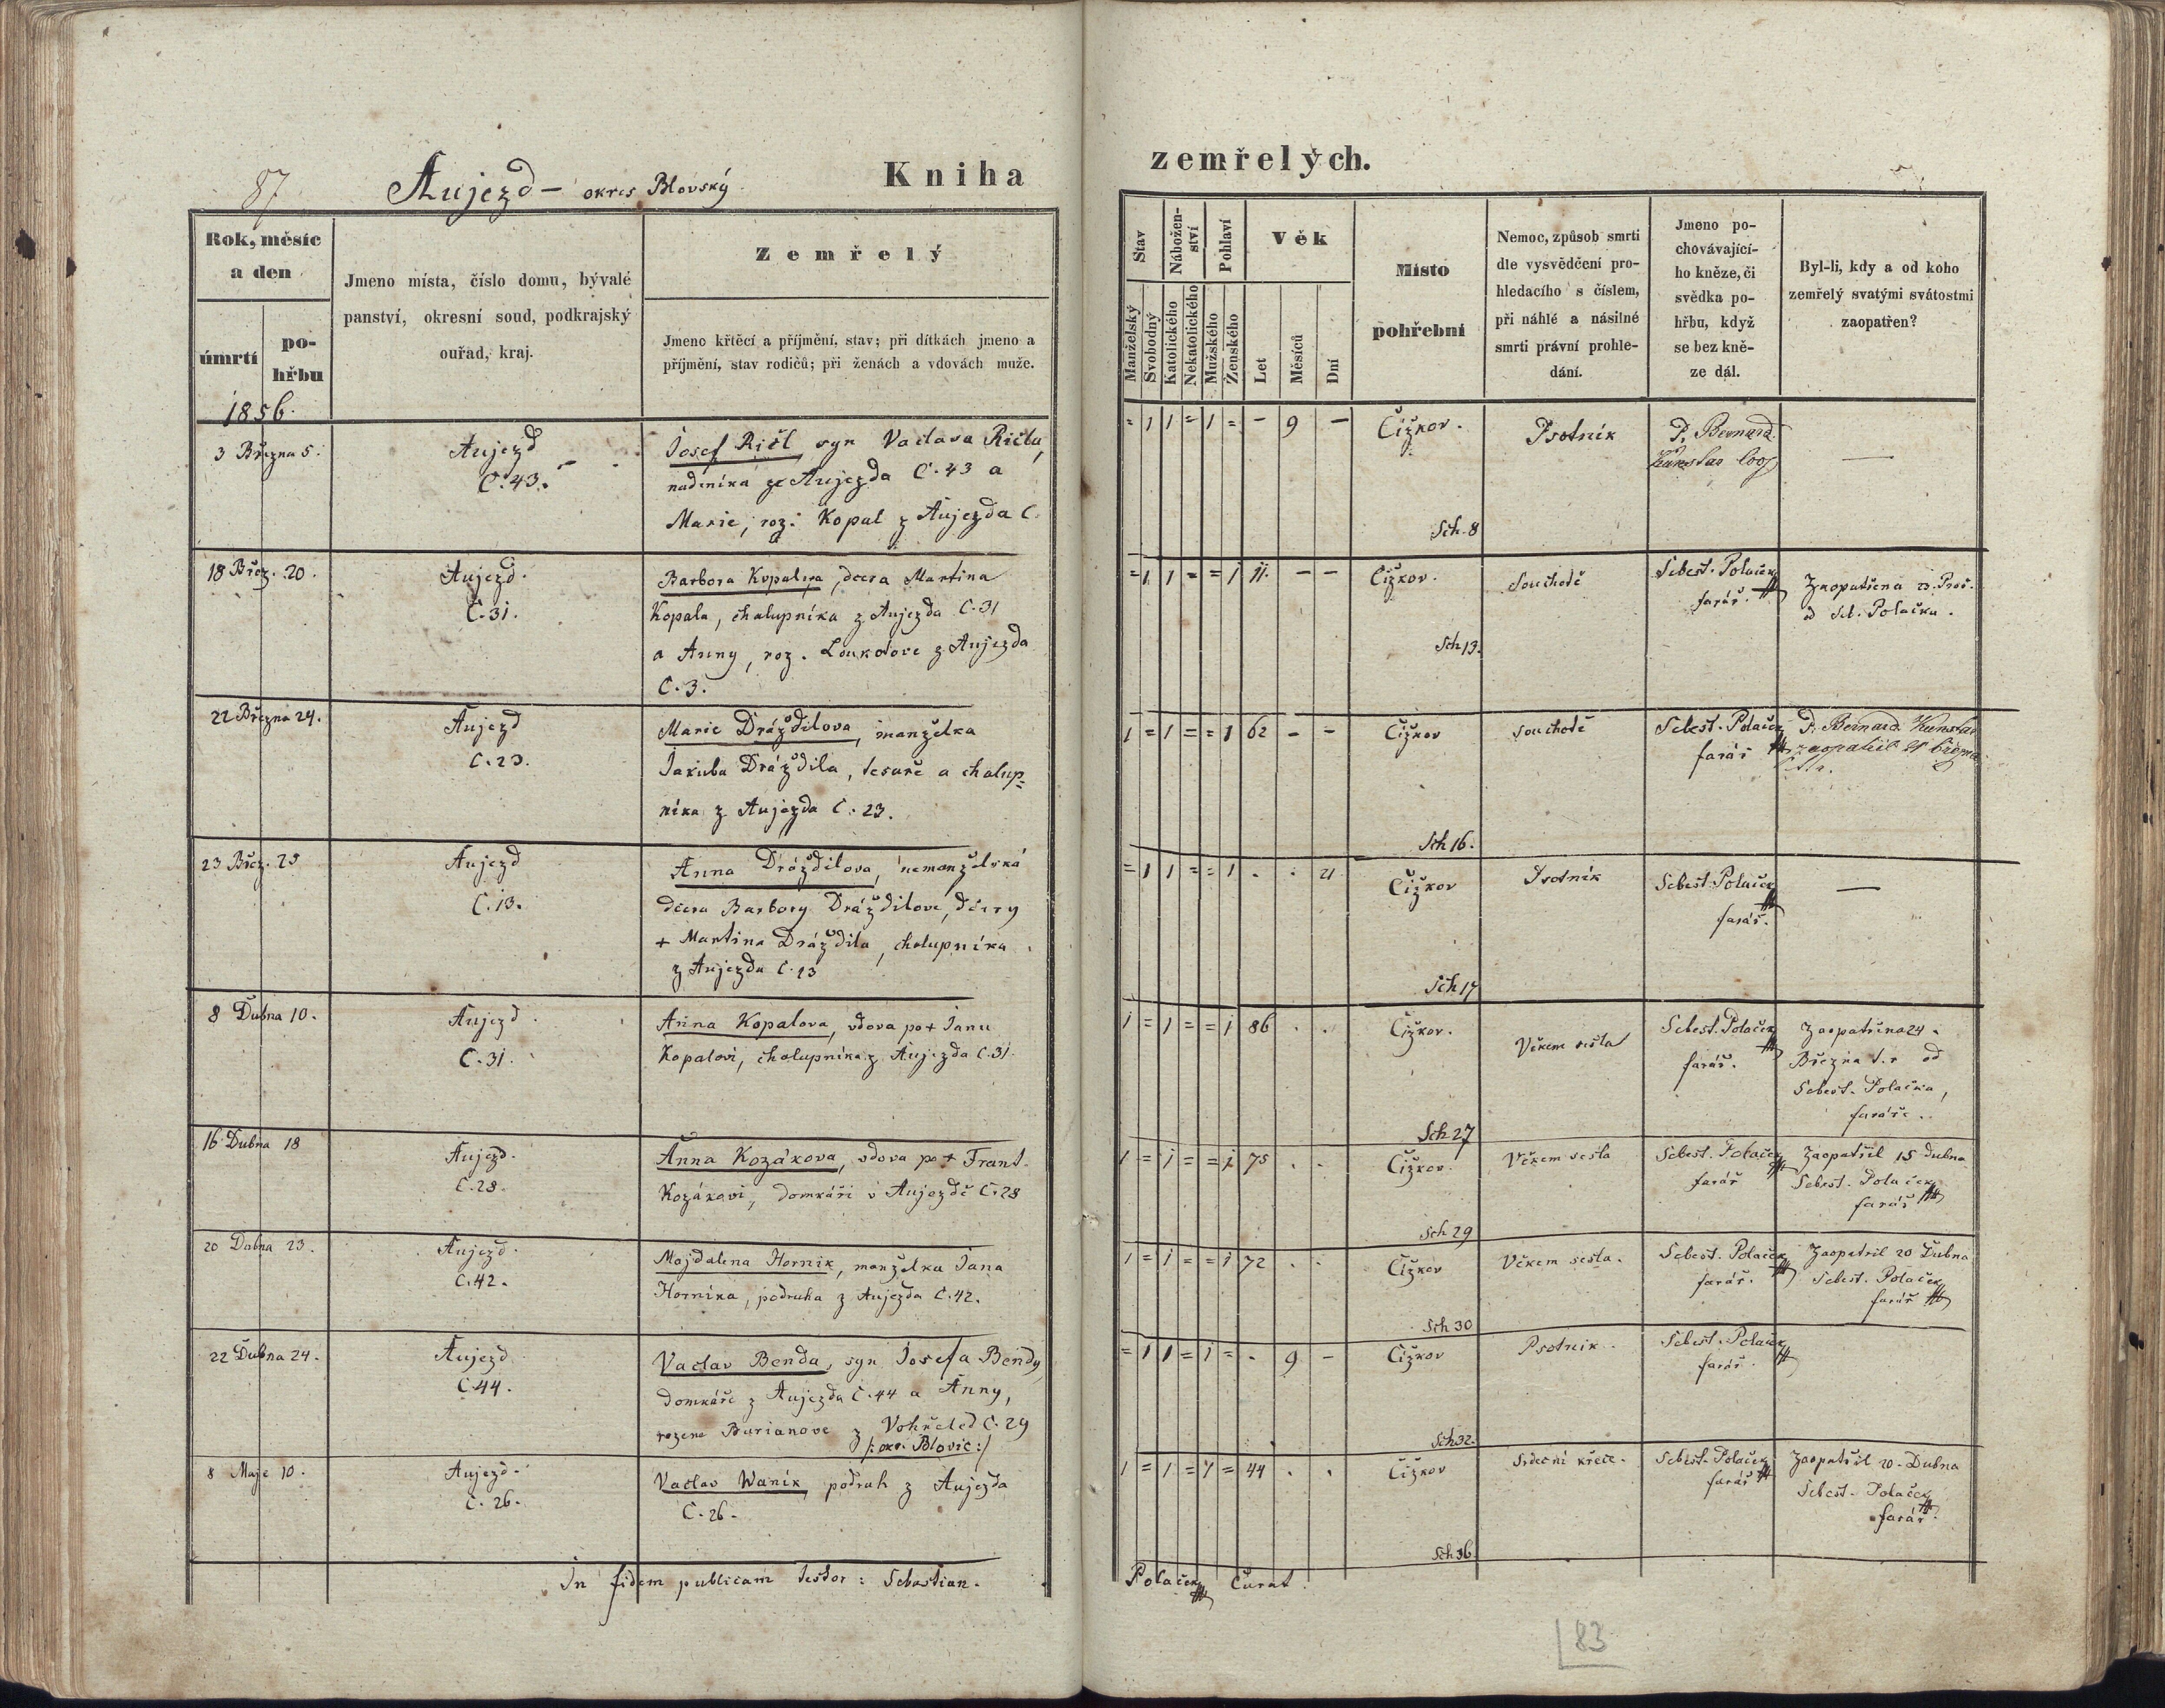 87 Aujezd – okres Blovský. Kniha
Rok, měsíc
a den
úmrtí
po-
hřbu
Jmeno místa, číslo domu, bývalé
panství, okresní soud, podkrajský
ouřad, kraj.
Zemřelý
Jmeno křtěcí a příjmění, stav; při dítkách jmeno a
příjmění, stav rodičů; při ženách a vdovách muže.
1856.
3 Března 5.
Aujezd
C. 43.
Josef Ričl, syn Vaclava Ričla,
nadeníka ze Aujezda C. 43 a
Marie, roz. Kopal z Aujezda C.
18 Břez. 20.
Aujezd.
C. 31.
Barbora Kopalova, dcera Martina
Kopala, chalupníka z Aujezda C. 31
a Anny, roz. Loukotove z Aujezda
C. 3.
22 Března 24.
Aujezd
C. 23.
Marie Drážďilova, manželka
Jakuba Drážďila, tesaře a chalup=
níka z Aujezda C. 23.
23 Břez. 25
Aujezd
C. 13.
Anna Drážďilova, nemanželská
dcera Barbory Drážďilove, dcery
+ Martina Drážďila, chalupníka
z Aujezda C. 13
8 Dubna 10.
Aujezd.
C. 31.
Anna Kopalova, vdova po + Janu
Kopalovi, chalupníka z Aujezda C. 31.
16 Dubna 18
Aujezd.
C. 28.
Anna Kozákova, vdova po + Frant.
Kozákovi, domkáři v Aujezdě C. 28
20 Dubna 23.
Aujezd.
C. 42.
Majdalena Hornik, manželka Jana
Hornika, podruha z Aujezda C. 42.
22 Dubna 24.
Aujezd
C. 44.
Vaclav Benda, syn Josefa Bendy,
domkáře z Aujezda C. 44 a Anny,
rozene Burianove z Vohřeled C. 29
/: okr. Blovic :/
8 Maje 10.
Aujezd.
C. 26.
Vaclav Wanik, podruh z Aujezda
C. 26.
In fidem publicam testor: Sebastian.
zemřelých.
Stav
Nábožen-
ství
Pohlaví
Věk
Manželský
Svobodný
Katolického
Nekatolického
Mužského
Ženského
Let
Měsíců
Dní
Místo
pohřební
Nemoc, způsob smrti
dle vysvědčení pro-
hledacího s číslem,
při náhlé a násilné
smrti právní prohle-
dání.
Jmeno po-
chovávající-
ho kněze, či
svědka po-
hřbu, když
se bez kně-
ze dál.
Byl-li, kdy a od koho
zemřelý svatými svátostmi
zaopatřen?
= 1 1 = 1 = – 9 – Čižkov. Psotník P. Bernard —
Sch. 8
= 1 1 = = 1 11. – – Čižkov. Souchotě Sebest. Polaček
farář.
Zaopatřena
od Seb. Polačka.
Sch 13.
1 = 1 = = 1 62 – – Čižkov Souchotě Sebest. Polaček P. Bernard
farář zaopatřil 21 března
Sch 16.
= 1 1 = = 1 . . 21 Čižkov Psotník Sebest. Polaček —
farář.
Sch 17
1 = 1 = = 1 86 . . Čižkov. Věkem sešla Sebest. Polaček
farář.
Zaopatřena 24.
Března t. r. od
Sebest. Polačka,
faráře.
Sch 27
1 = 1 = = 1 75 . . Čižkov. Věkem sešla Sebest. Polaček
farář
Zaopatřil 15 dubna
Sebest. Polaček
farář
Sch 29
1 = 1 = = 1 72 . . Čižkov Věkem sešla. Sebest. Polaček
farář.
Zaopatřil 20 Dubna
Sebest. Polaček
farář
Sch 30
= 1 1 = 1 = . 9 – Čižkov Psotnik. Sebest. Polaček
farář.
Sch 32.
1 = 1 = 1 = 44 . . Čižkov Srdeční křeče. Sebest. Polaček
farář
Zaopatřil 20. Dubna
Sebest. Polaček
farář.
Sch 36
Polaček Curat.
83